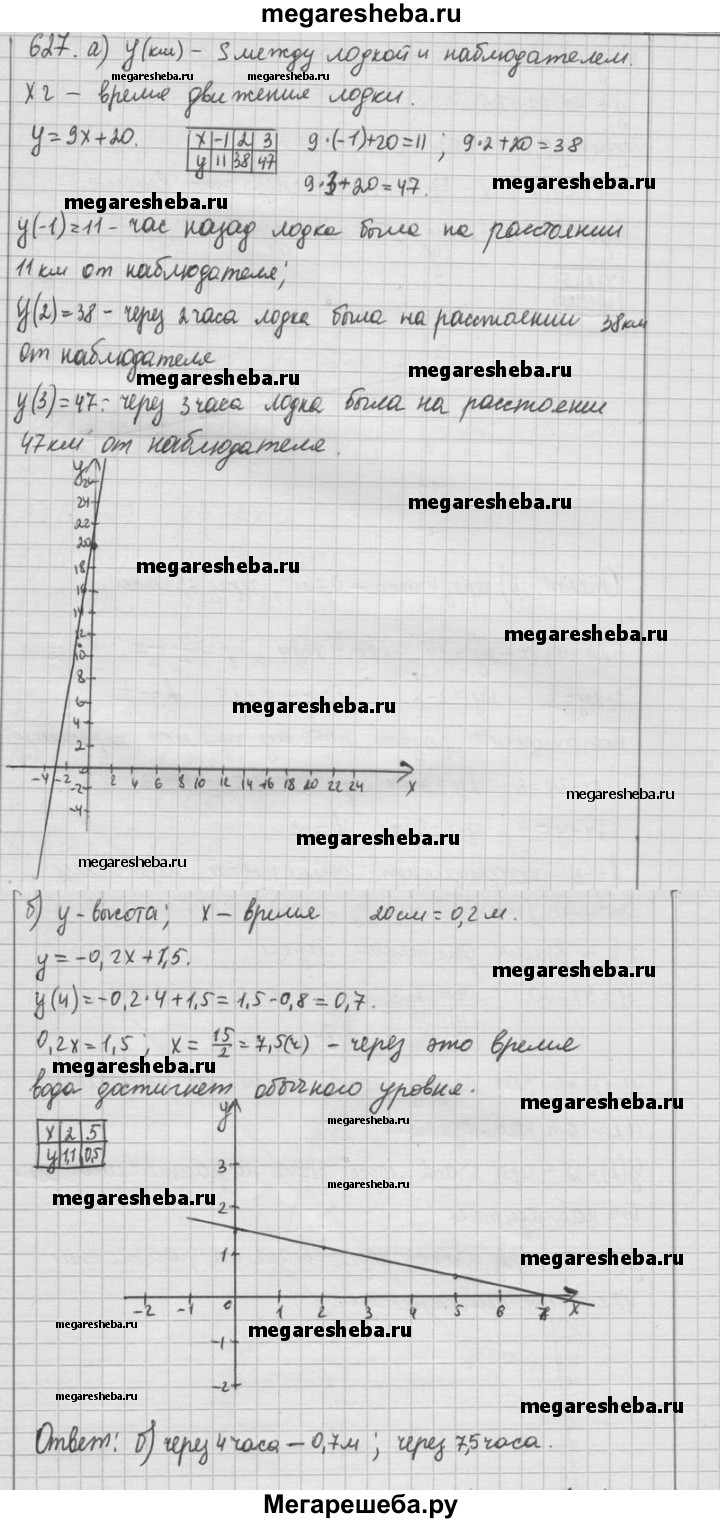 megaresheba.ru
627. а) у(км) – S между лодкой и наблюдателем.
megaresheba.ru megaresheba.ru
х ч – время движения лодки.
у=9х+20. х -1 2 3 9·(-1)+20=11; 9·2+20=38
у 11 38 47
9·3+20=47.
megaresheba.ru megaresheba.ru
у(-1)=11 – час назад лодка была на расстоянии
11 км от наблюдателя;
у(2)=38 – через 2 часа лодка была на расстоянии 38 км
от наблюдателя
megaresheba.ru megaresheba.ru
у(3)=47 – через 3 часа лодка была на расстоянии
47 км от наблюдателя.
у
24
22
20
18
16
14
12
10
8
6
4
2
0
-4 -2 2 4 6 8 10 12 14 16 18 20 22 24 х
-2
-4
megaresheba.ru
megaresheba.ru
megaresheba.ru
megaresheba.ru
megaresheba.ru
megaresheba.ru
megaresheba.ru
б) у – высота; х – время 20см = 0,2 м.
у = -0,2х+1,5.
megaresheba.ru
у(4)=-0,2·4+1,5=1,5-0,8=0,7.
0,2х=1,5; х=15/2=7,5(ч) – через это время
megaresheba.ru
вода достигнет обычного уровня.
megaresheba.ru
megaresheba.ru
х 2 5
у 1,1 0,5
у
3
2
1
-2 -1 0 1 2 3 4 5 6 7 х
-1
-2
megaresheba.ru
megaresheba.ru
megaresheba.ru
megaresheba.ru
megaresheba.ru
megaresheba.ru
megaresheba.ru
Ответ: б) через 4 часа – 0,7м; через 7,5 часа.
Мегарешеба.ру